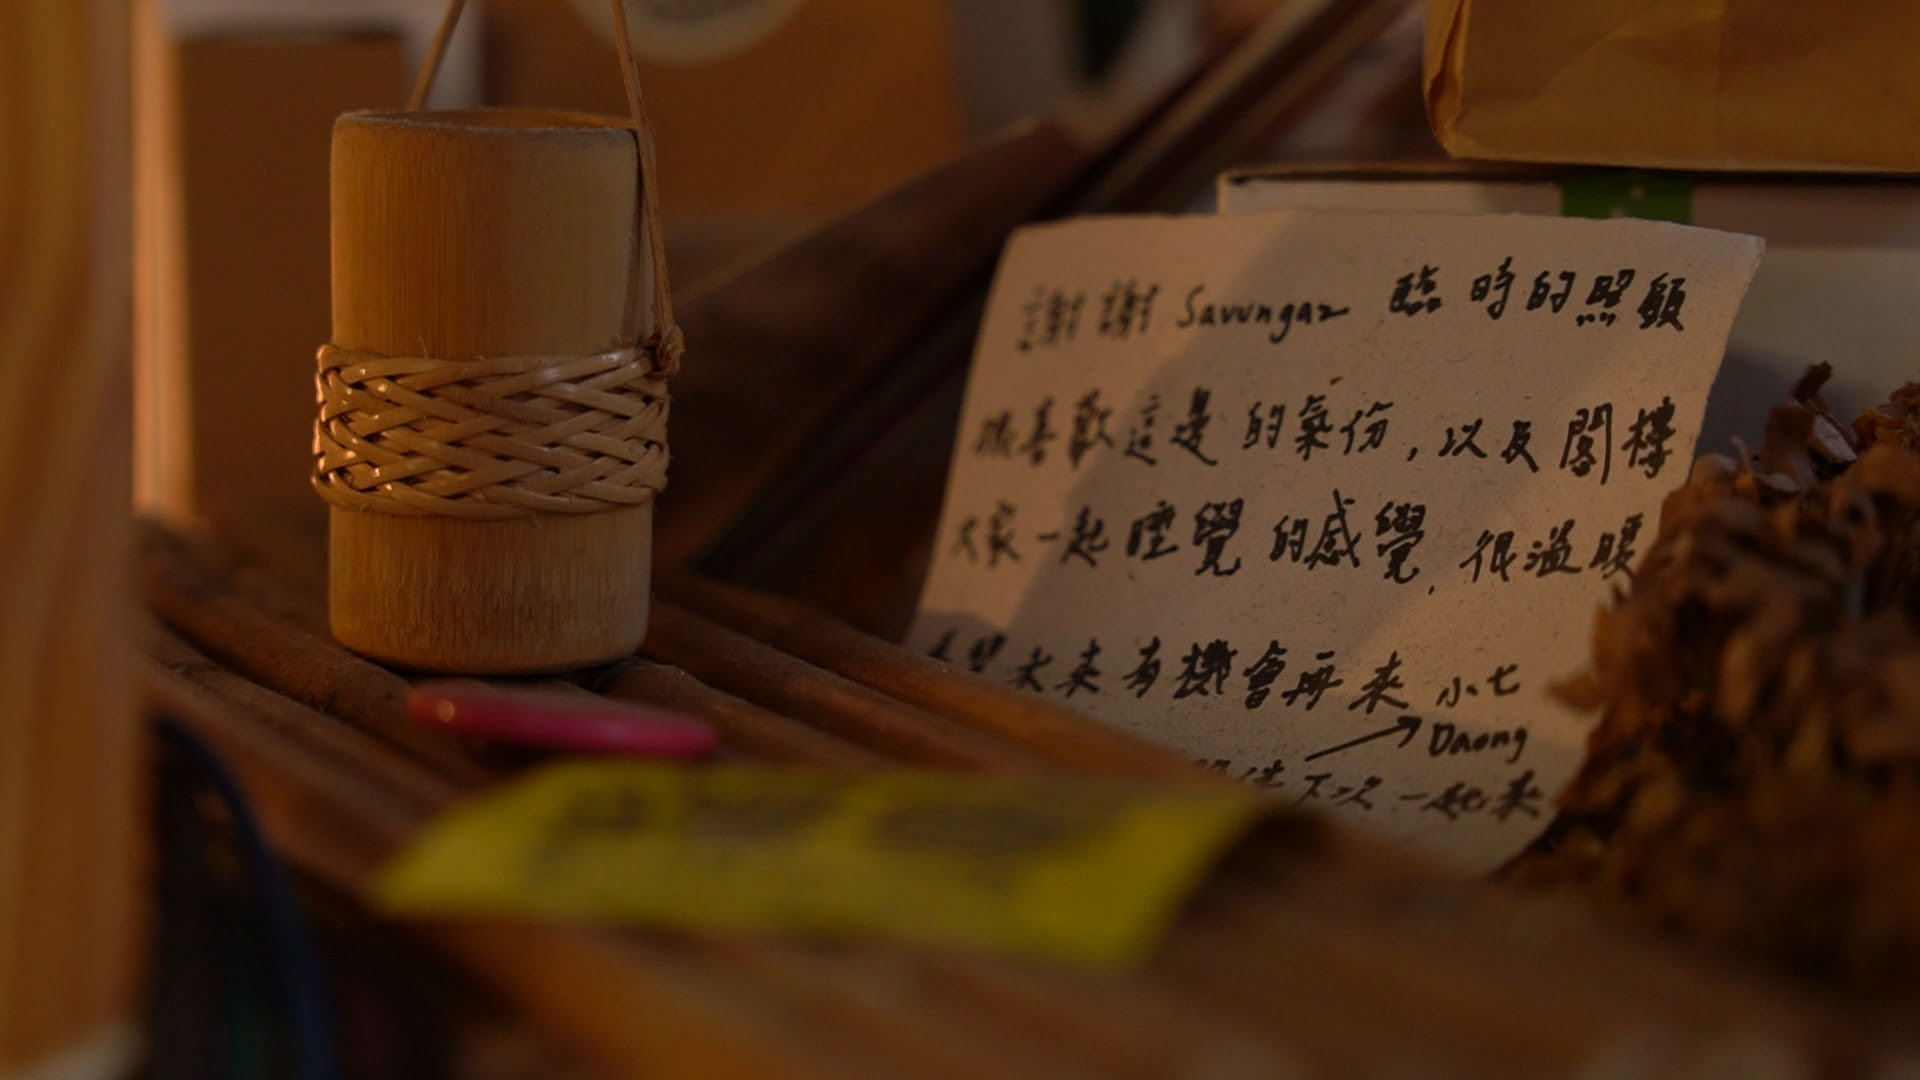 謝謝 Savungaz 臨時的照顧
很喜歡這是的氣份,以及閣樓
大家一起睡覺的感覺,很溫暖
希望未來有機會再來 小七
Daong
下次一起來